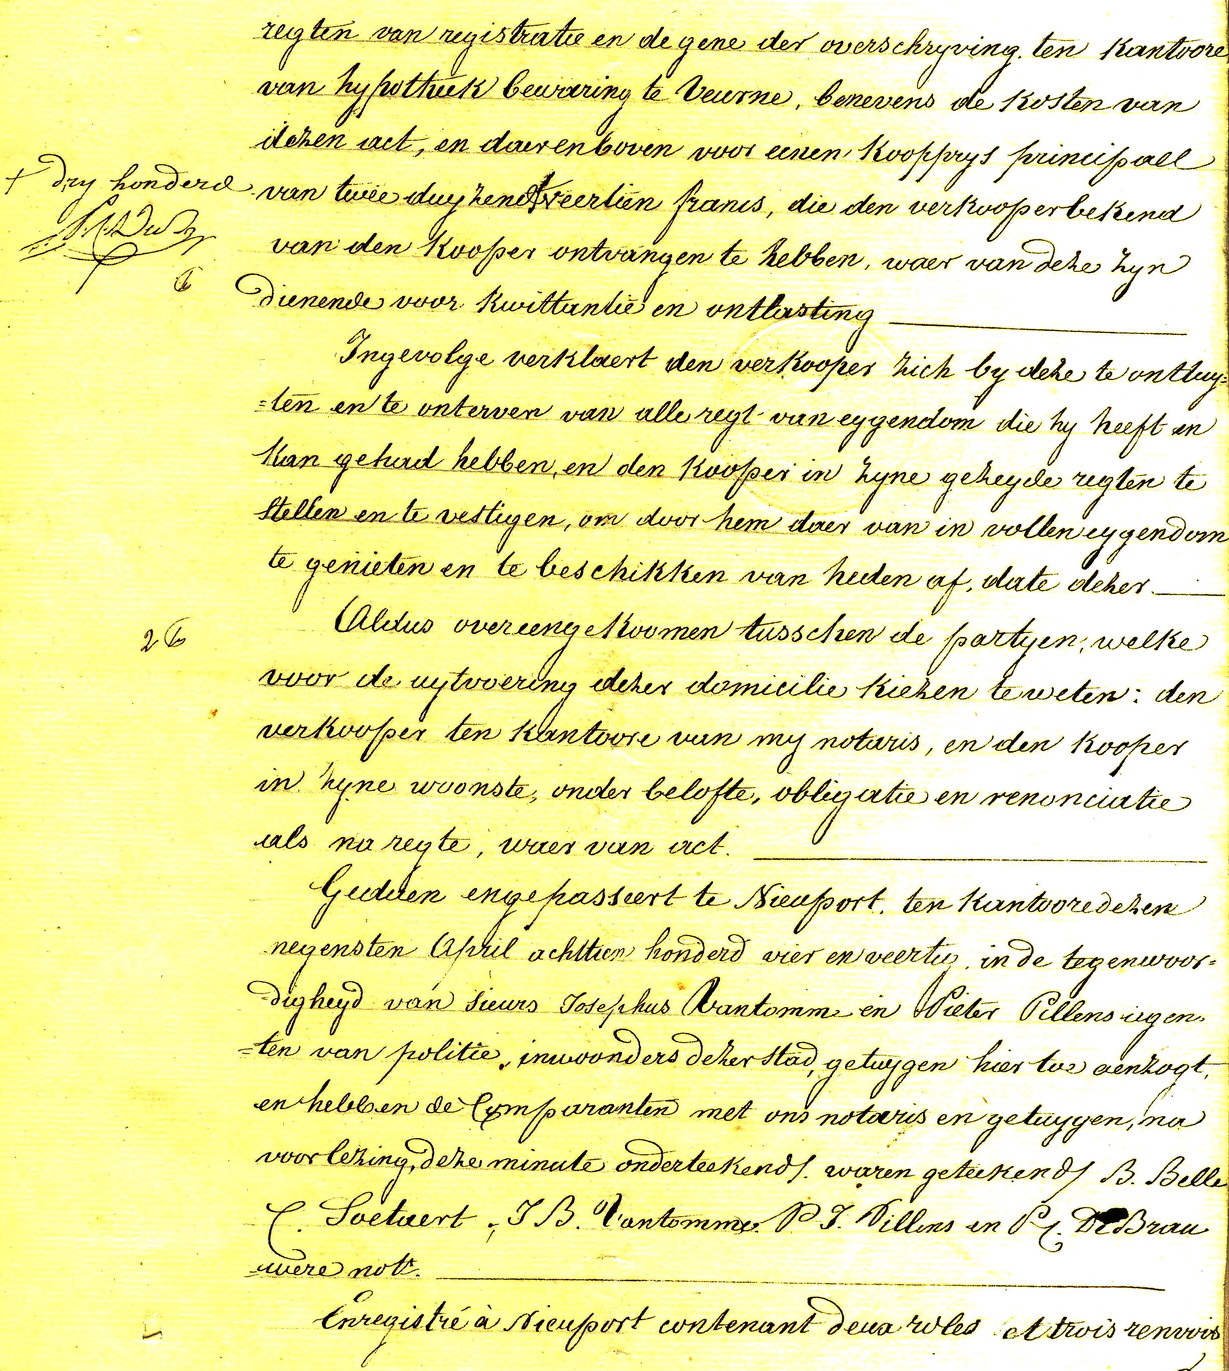 regten van registratie en de gene der overschryving ten kantoore
van hypotheek bewaring te Veurne, benevens de kosten van
dezen act, en daerenboven voor eenen koopprys principael
+ dry honderd
van twee duyzend + veertien francs, die den verkooper bekend
van den kooper ontvangen te hebben, waer van deze zyn
dienende voor kwittantie en ontlasting
Ingevolge verklaert den verkooper zich by deze te ontluy=
=ten en te onterven van alle regt van eygendom die hy heeft en
kan gehad hebben, en den kooper in zyne gezeyde regten te
stellen en te vestigen, om door hem daer van in vollen eygendom
te genieten en te beschikken van heden af, date dezer.
Aldus overeengekoomen tusschen de partyen, welke
2
voor de uytvoering dezer domicilie kiezen te weten: den
verkooper ten kantoore van my notaris, en den kooper
in zyne woonste, onder belofte, obligatie en renonciatie
als na regte, waer van act.
Gedaen en gepasseert te Nieuport, ten kantoore dezen
negensten April achttien honderd vier en veertig, in de tegenwoor=
=digheyd van sieurs Josephus Vantomme en Pieter Pillens agen=
=ten van politie, inwoonders dezer stad, getuygen hier toe aenzogt,
en hebben de Comparanten met ons notaris en getuygen, na
voorlezing, deze minute onderteekend/. waren geteekend/ B. Belle
C. Soetaert, J B. Vantomme P J. Pillens en P C. De Brau
=were nots.
Enregistré à Nieuport contenant deux roles et trois renvois